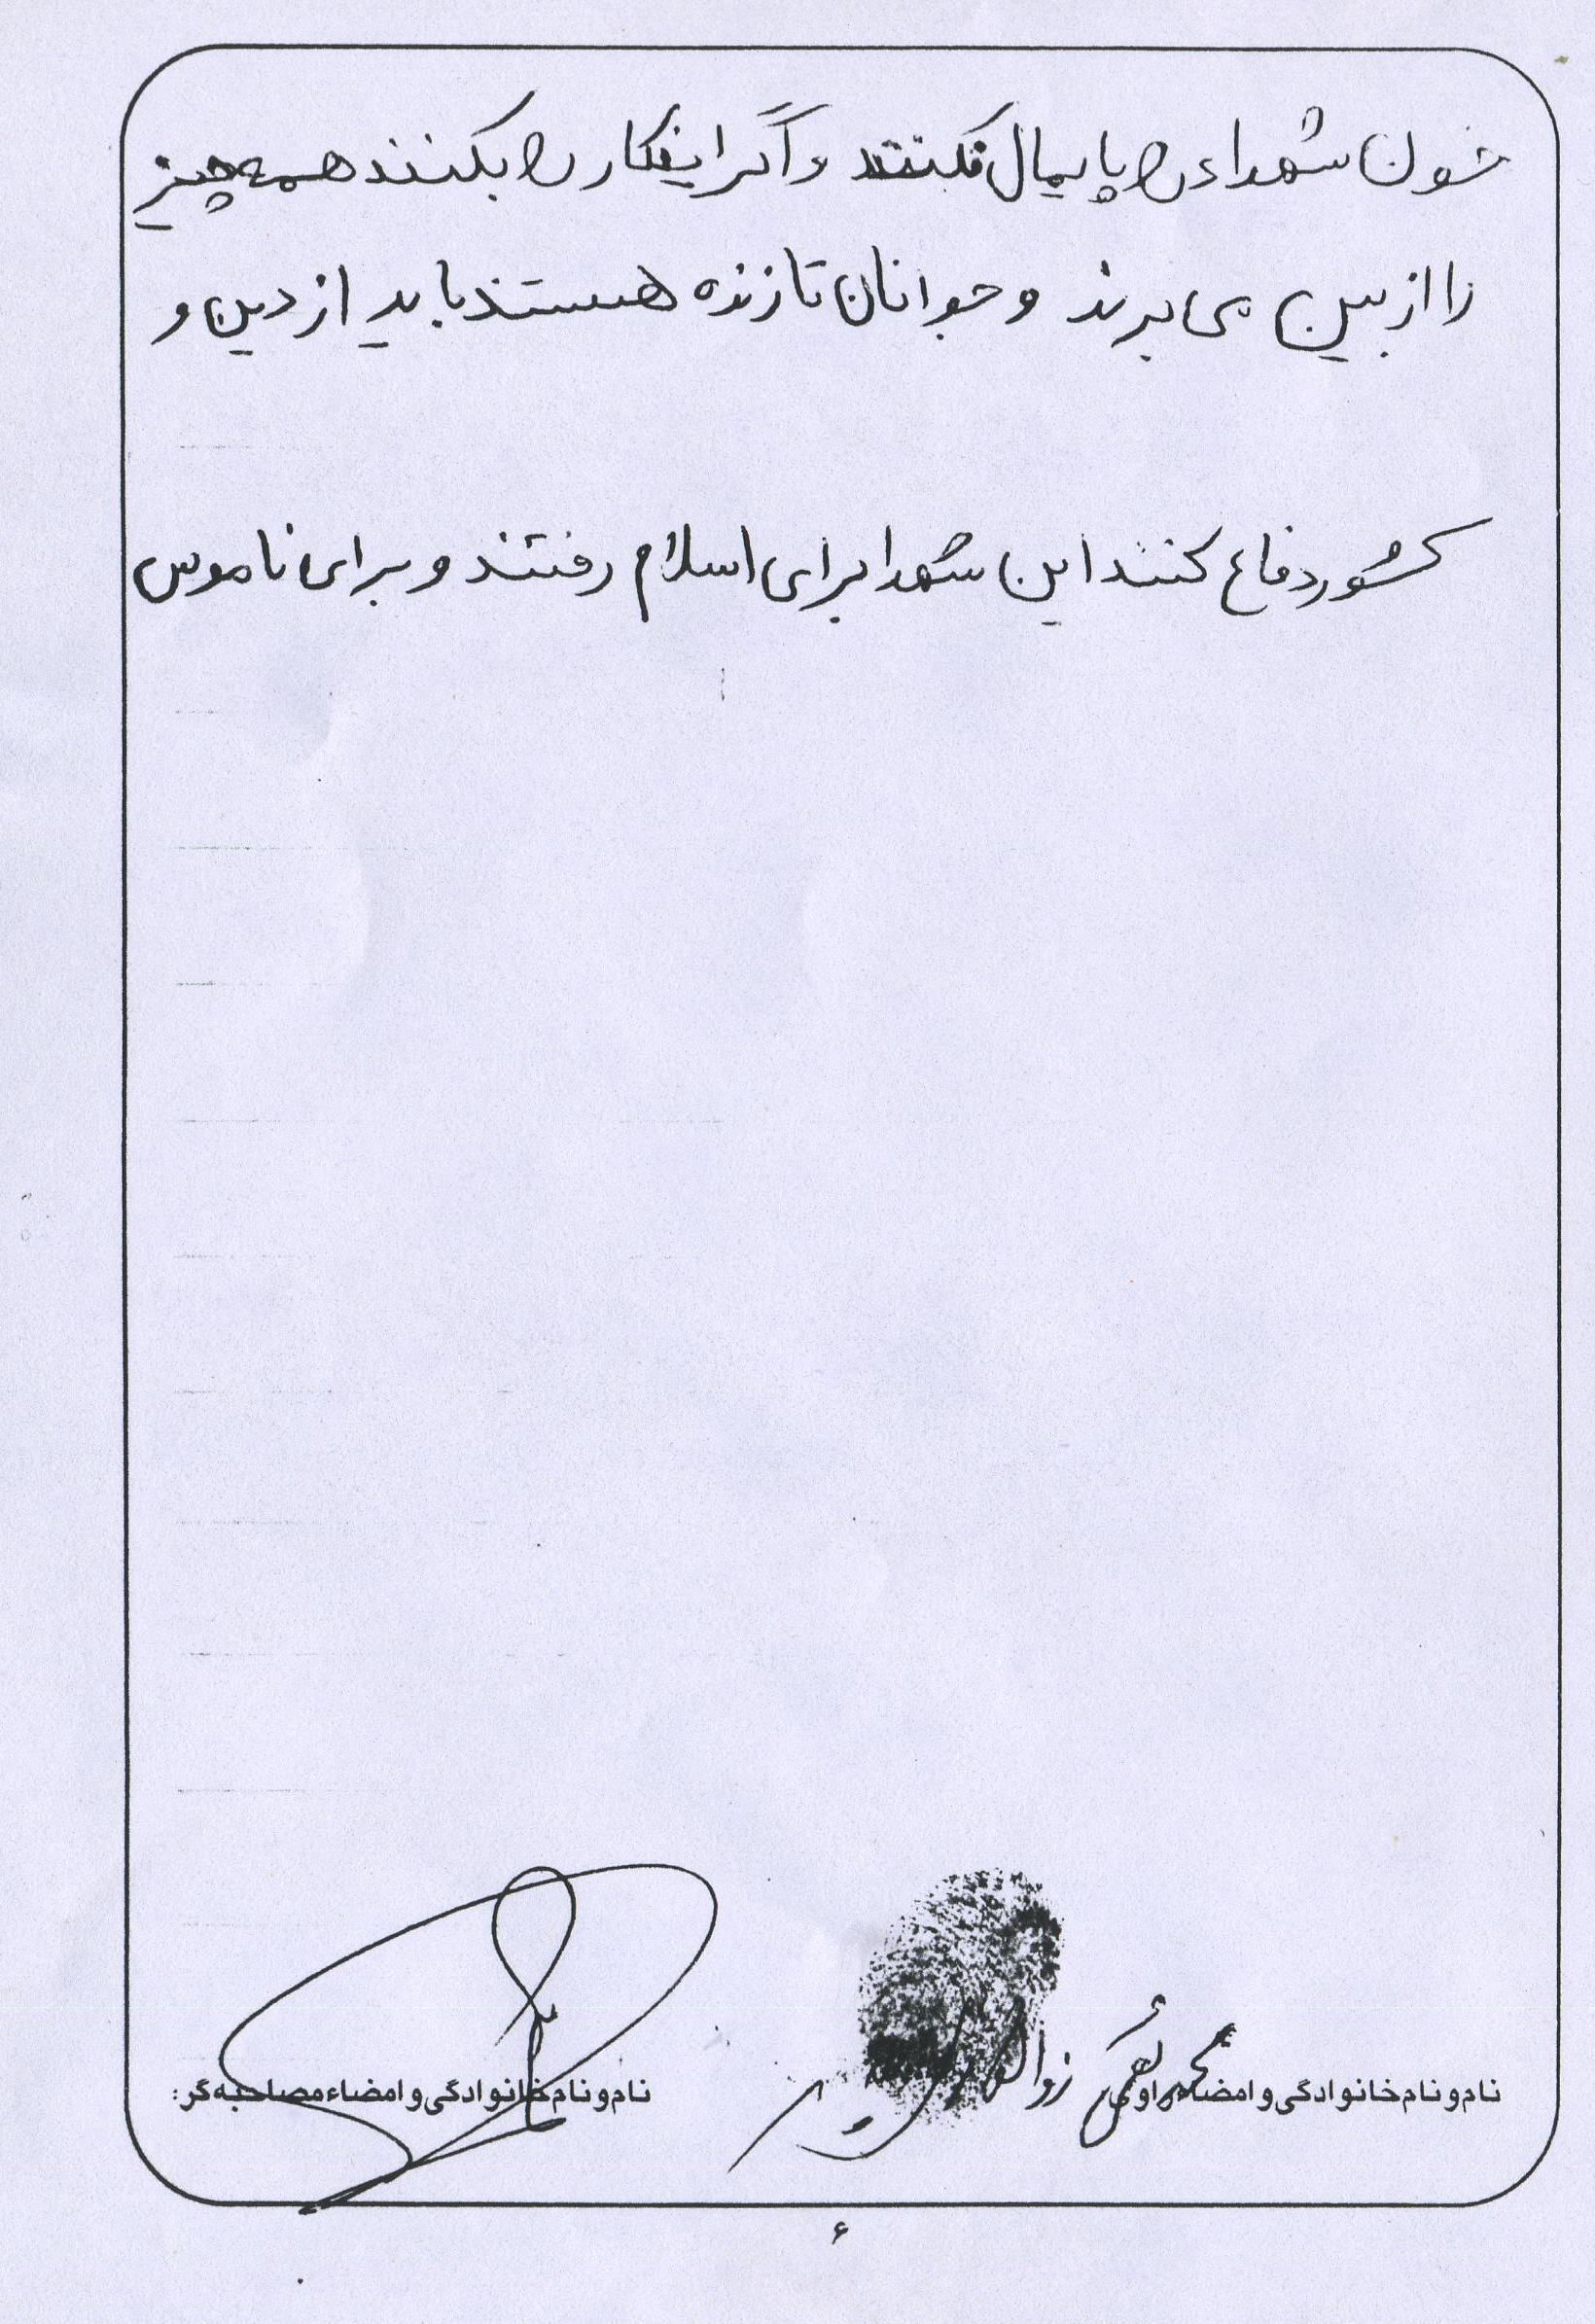 خون شهداء را پایمال نکنند و اگر اینکار را بکنند همه چیز
را از بین می برند و جوانان تا زنده هستند باید از دین و
کشور دفاع کنند این شهدا برای اسلام رفتند و برای ناموس
نام و نام خانوادگی و امضاء راوی: محمد تقی
نام و نام خانوادگی و امضاء مصاحبه گر:
۶